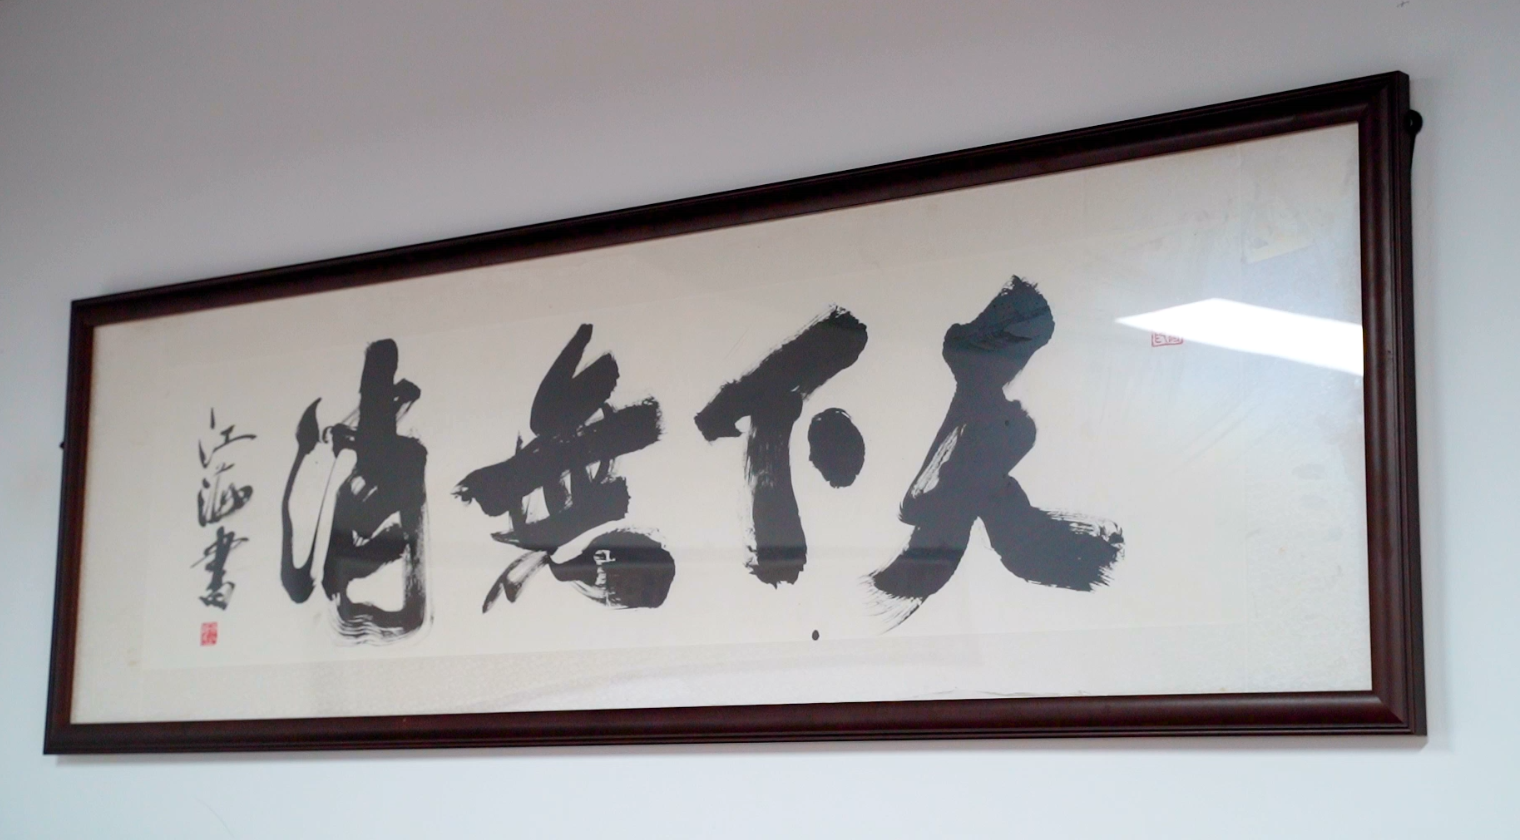 天下無消
江海書